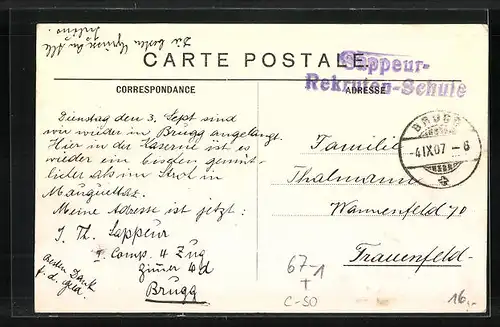 Die besten an Alle
CARTE POSTALE.
Sappeur-
Rekruten-Schule
CORRESPONDANCE
ADRESSE
Dienstag den 3. Sept sind
wir wieder in Brugg angelangt.
Hier in der Caserne ist es
wieder ein bischen gemüt-
licher als im Stroh in
Meine Adresse ist jetzt:
J. Th. Sappeur
I. Comp. 4 Zug
Zimer 4d
Brugg
Besten Dank
f. d. Geld.
BRUGG
-4.IX.07.-6
Familie
Thalmann
Wannenfeld 70
Frauenfeld-
67-1
C-50
16.-